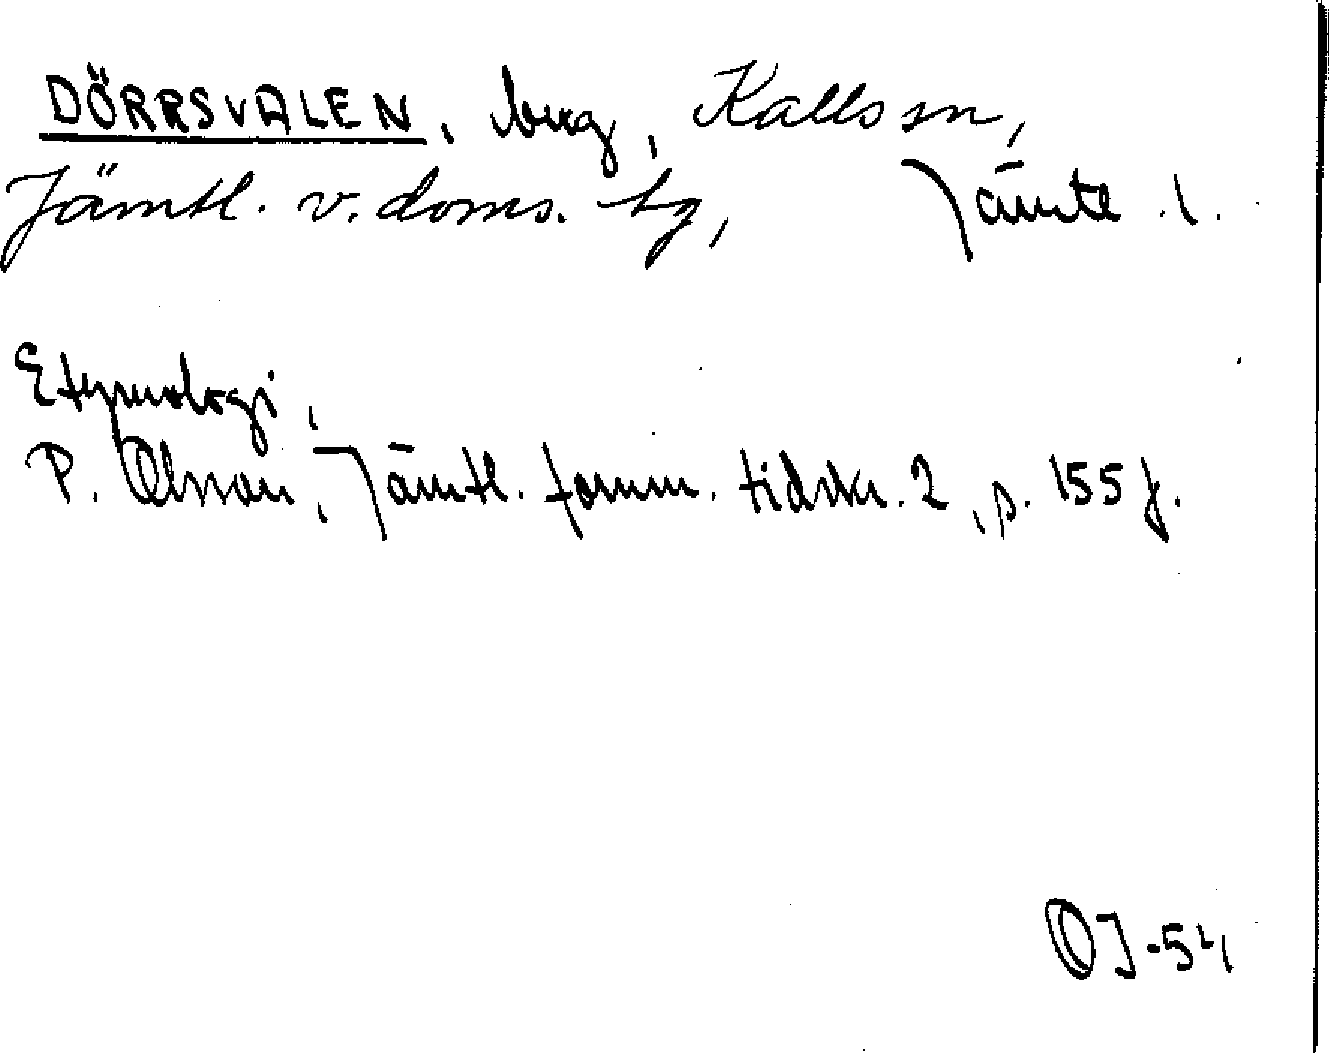 DÖRRSVALEN, berg, Kalls sn,
Jämtl. v. doms. tg, Jämtl. l.
Etymologi,
P. Olsson, Jämtl. fornm. tidskr. 2, s. 155 f.
OJ-54